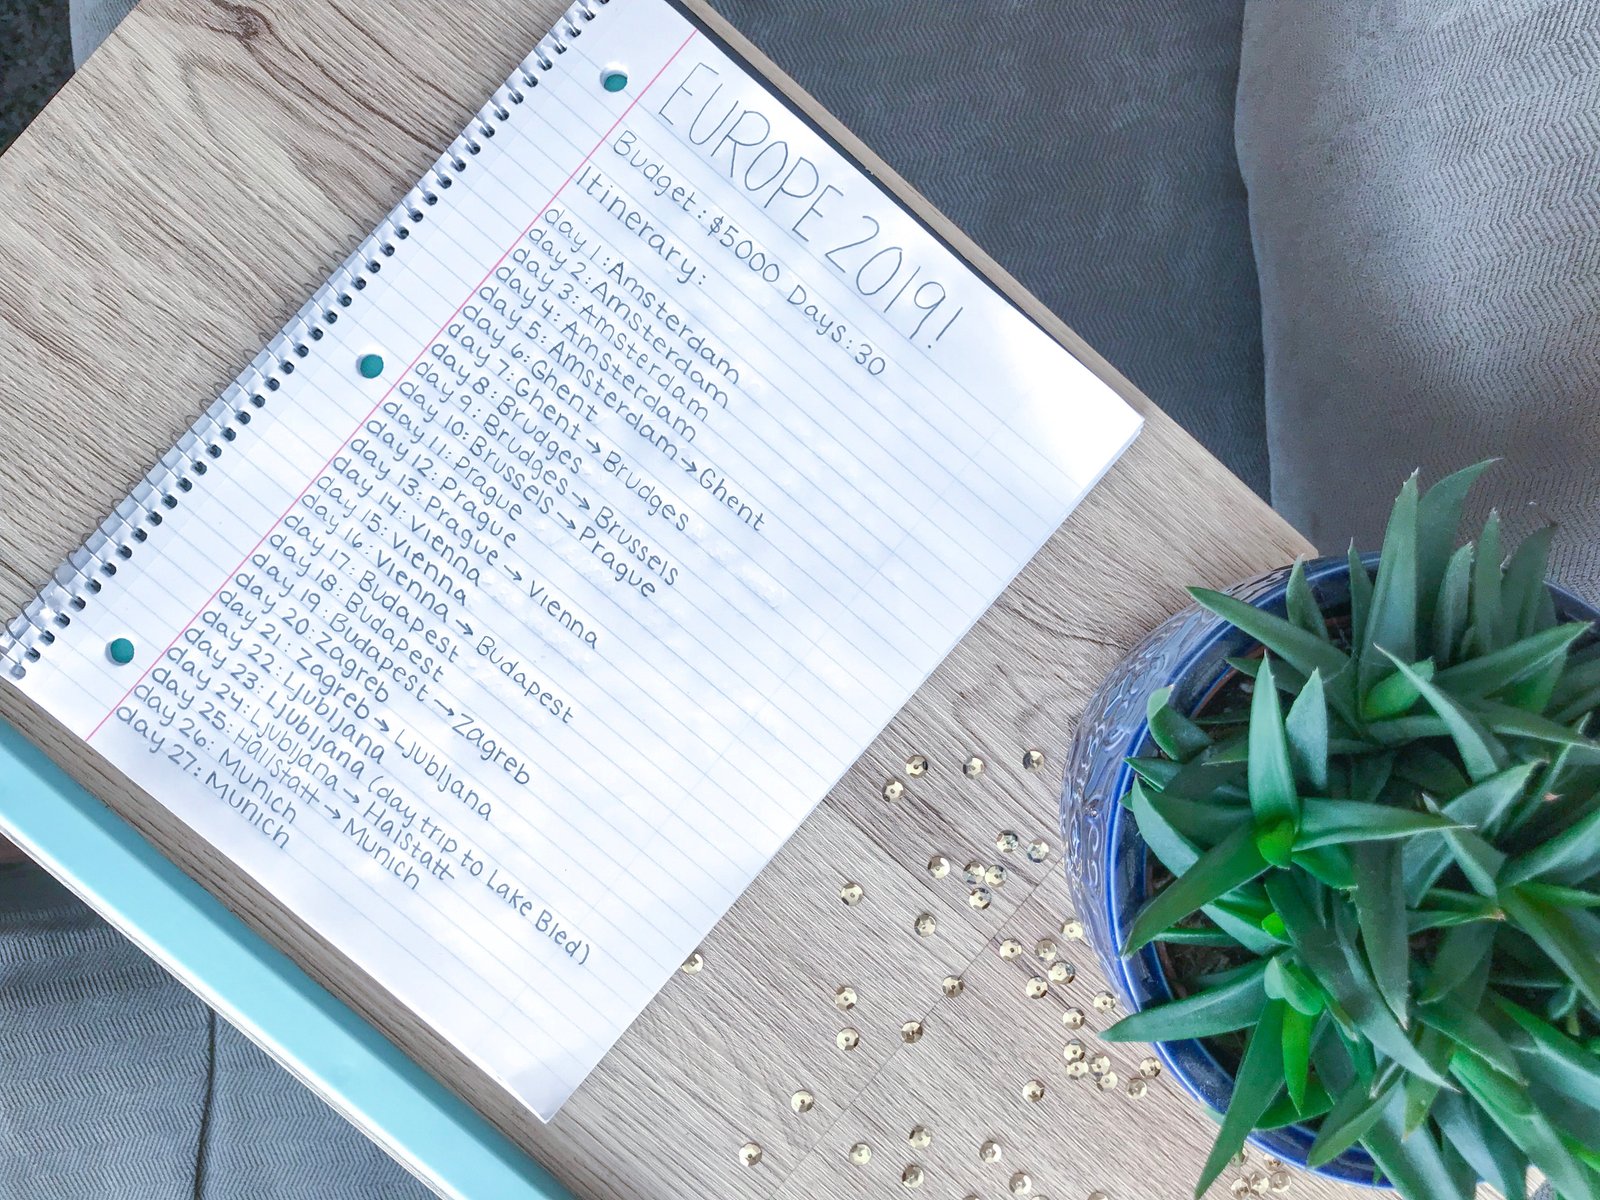 EUROPE 2019!
Budget: $5000 Days: 30
Itinerary:
day 1: Amsterdam
day 2: Amsterdam
day 3: Amsterdam
day 4: Amsterdam
day 5: Amsterdam → Ghent
day 6: Ghent
day 7: Ghent → Brudges
day 8: Brudges
day 9: Brudges → Brussels
day 10: Brussels → Prague
day 11: Prague
day 12: Prague
day 13: Prague → Vienna
day 14: Vienna
day 15: Vienna
day 16: Vienna → Budapest
day 17: Budapest
day 18: Budapest
day 19: Budapest → Zagreb
day 20: Zagreb
day 21: Zagreb → Ljubljana
day 22: Ljubljana
day 23: Ljubljana (day trip to Lake Bled)
day 24: Ljubljana → Halstatt
day 25: Hallstatt → Munich
day 26: Munich
day 27: Munich